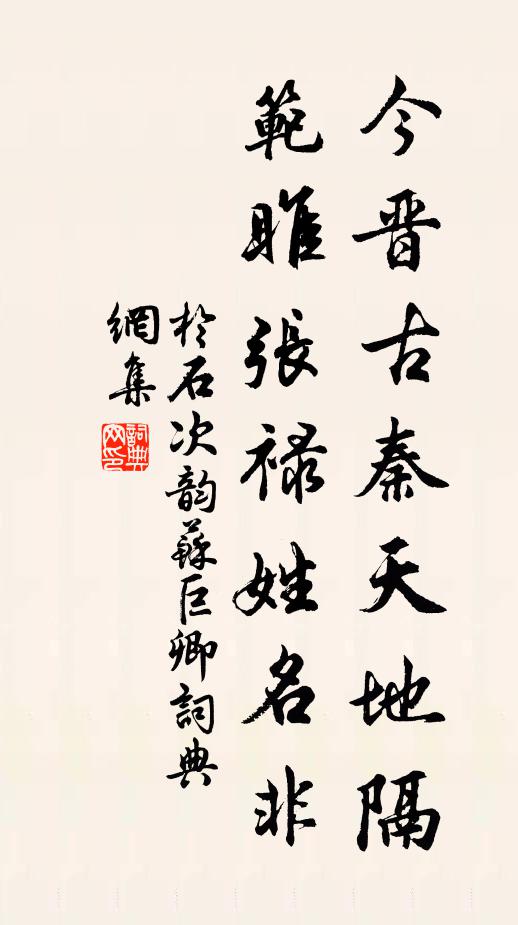 今晋古秦天地隔
範睢張禄姓名非
於石次韵蘇巨卿詞典
網集
詞典
网印